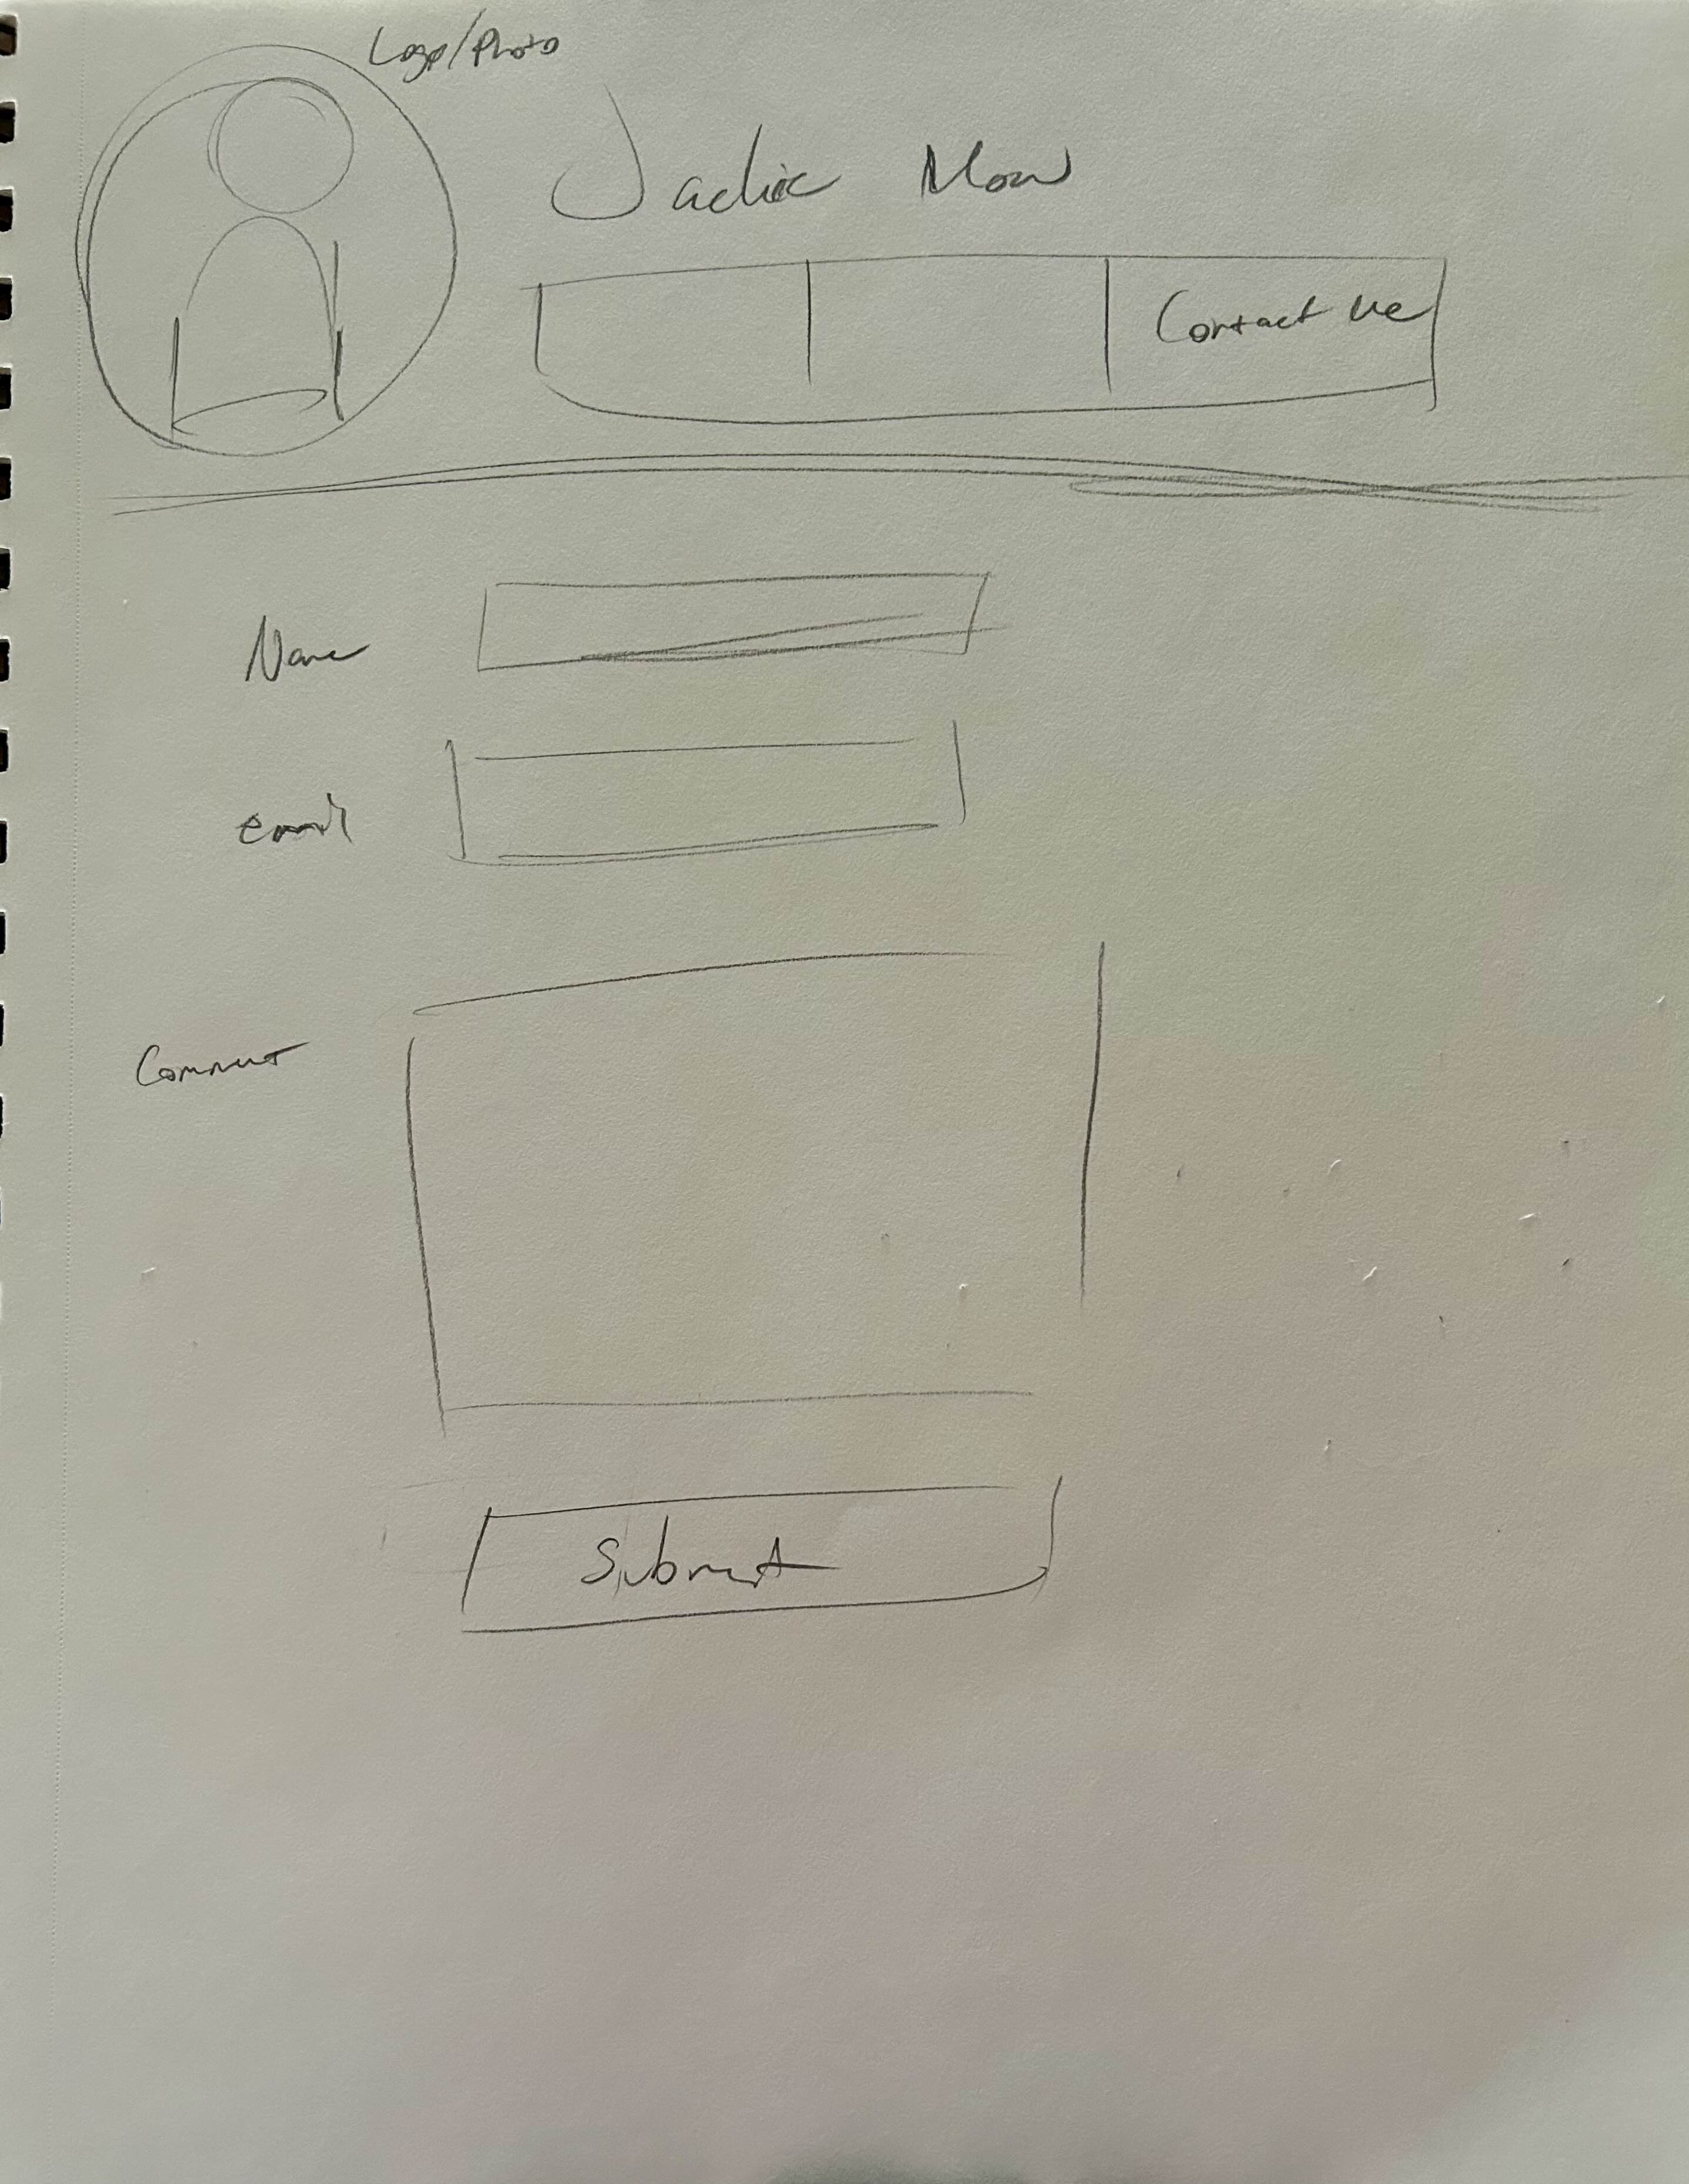 Logo/Photo
Jackie
Contact Me
Name
email
Comment
Submit